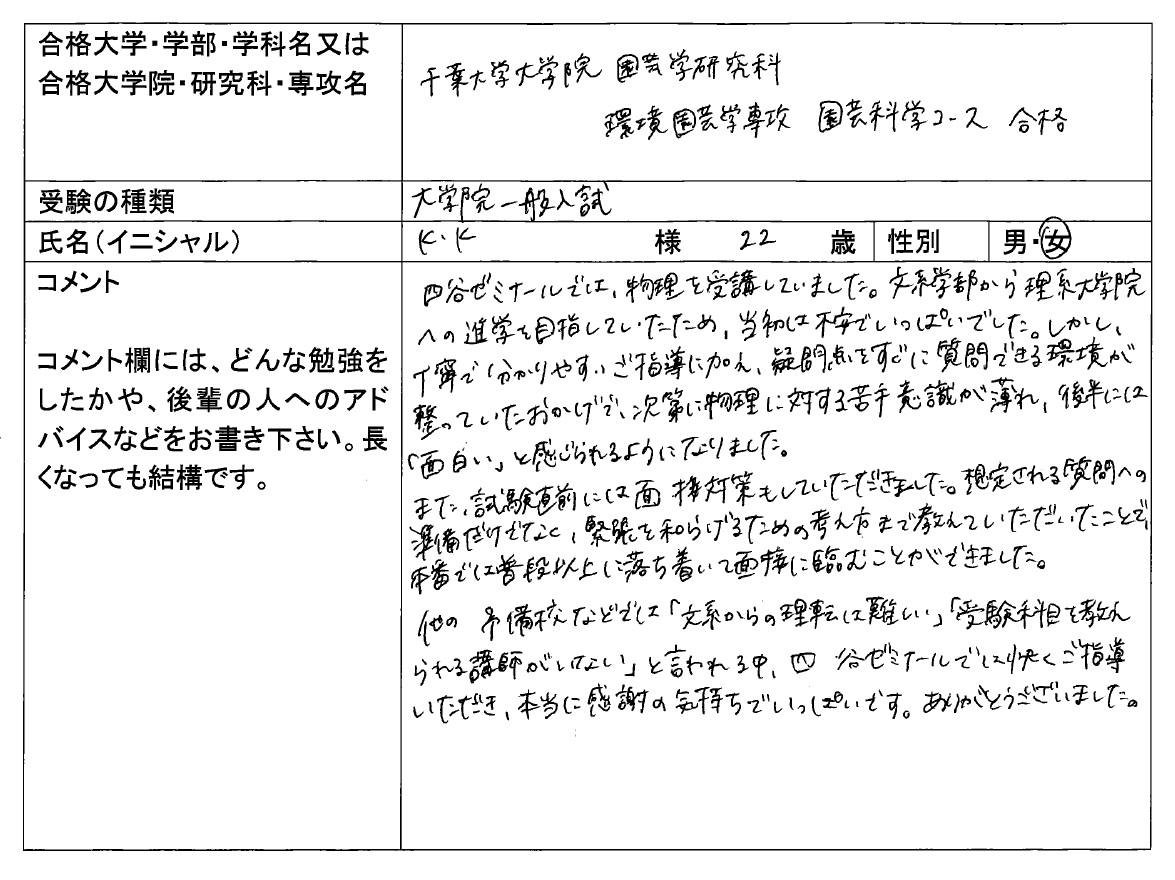 合格大学・学部・学科名又は
合格大学院・研究科・専攻名
千葉大学大学院 園芸学研究科
環境園芸学専攻 園芸科学コース 合格
受験の種類
大学院一般入試
氏名（イニシャル）
K・K 様 22 歳 性別 男・女
コメント
コメント欄には、どんな勉強を
したかや、後輩の人へのアド
バイスなどをお書き下さい。長
くなっても結構です。
四谷ゼミナールでは、物理を受講していました。文系学部から理系大学院
への進学を目指していたため、当初は不安でいっぱいでした。しかし、
丁寧で分かりやすいご指導に加え、疑問点をすぐに質問できる環境が
整っていたおかげで、次第に物理に対する苦手意識が薄れ、後半には
「面白い」と感じられるようになりました。
また、試験直前には面接対策もしていただきました。想定される質問への
準備だけでなく、緊張を和らげるための考え方まで教えていただいたことで、
本番では普段以上に落ち着いて面接に臨むことができました。
他の予備校などでは「文系からの理転は難しい」「受験科目を教え
られる講師がいない」と言われる中、四谷ゼミナールでは快くご指導
いただき、本当に感謝の気持ちでいっぱいです。ありがとうございました。